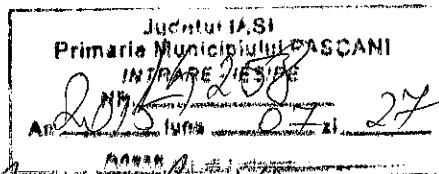 Judetul IASI
Primaria Municipiului PASCANI
INTRARE IESIRE
Nr.
An 2015 luna 07 zi 27